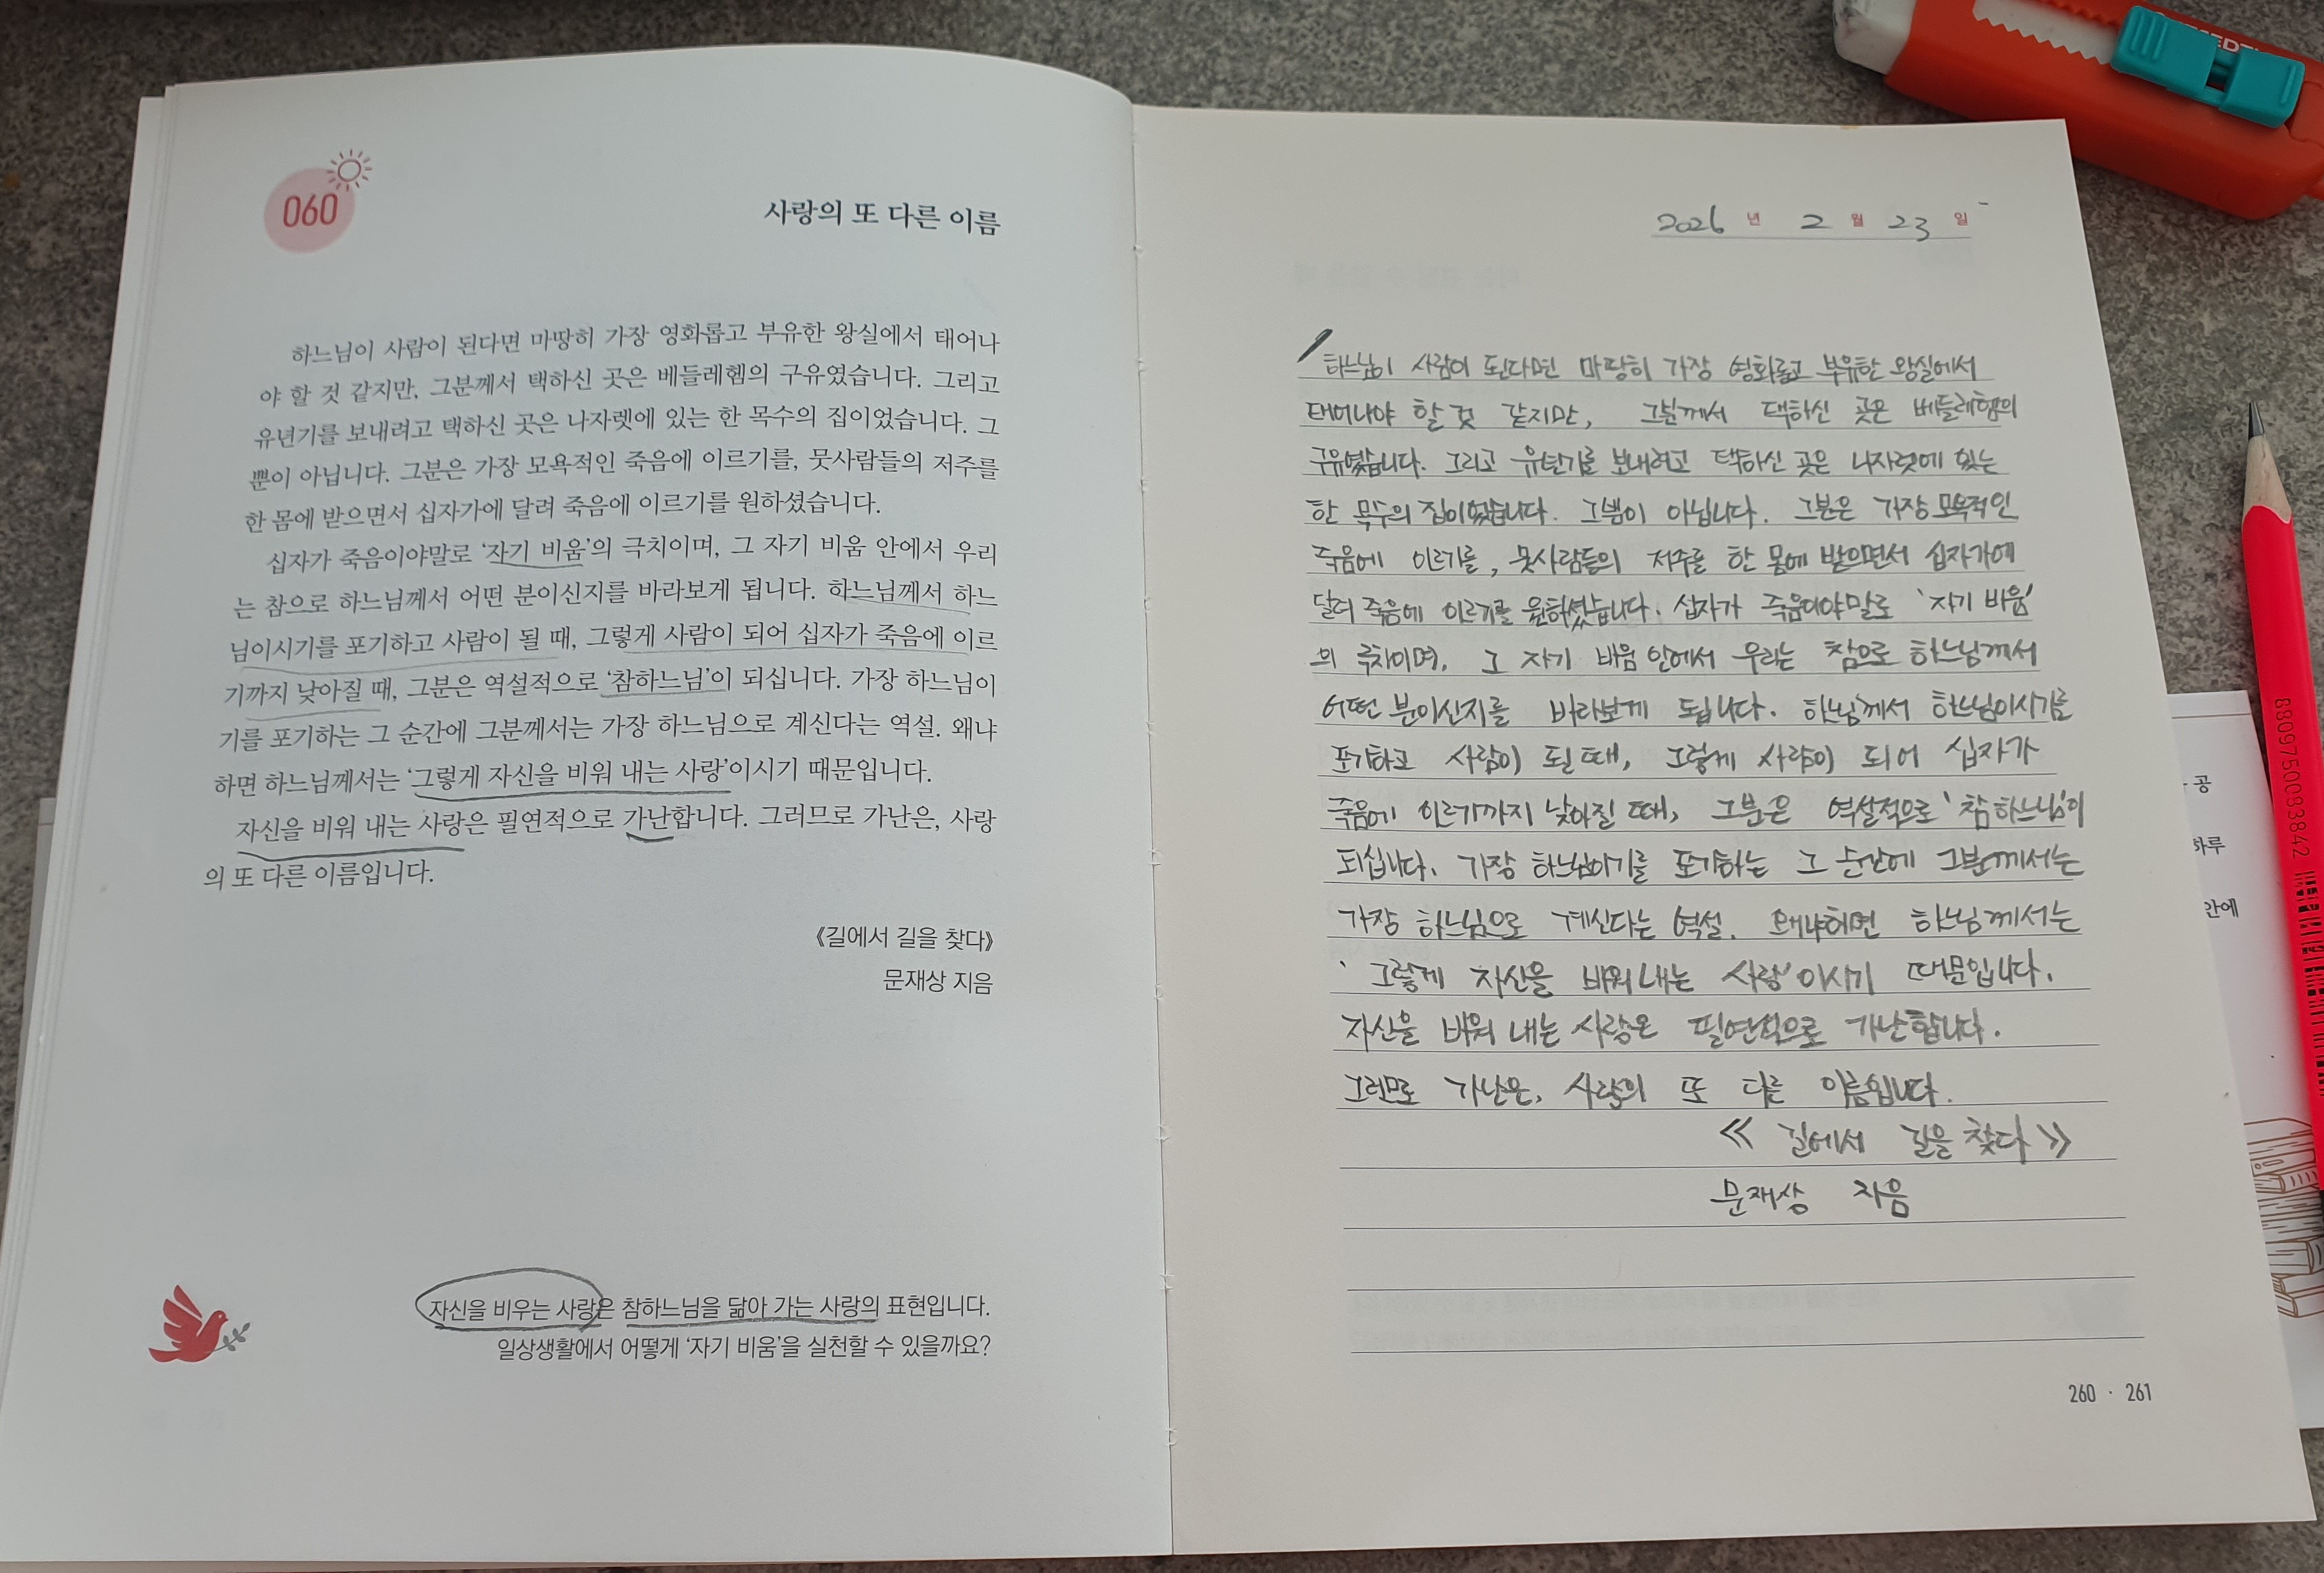 060
사랑의 또 다른 이름
하느님이 사람이 된다면 마땅히 가장 영화롭고 부유한 왕실에서 태어나
야 할 것 같지만, 그분께서 택하신 곳은 베들레헴의 구유였습니다. 그리고
유년기를 보내려고 택하신 곳은 나자렛에 있는 한 목수의 집이었습니다. 그
뿐이 아닙니다. 그분은 가장 모욕적인 죽음에 이르기를, 뭇사람들의 저주를
한 몸에 받으면서 십자가에 달려 죽음에 이르기를 원하셨습니다.
십자가 죽음이야말로 ‘자기 비움’의 극치이며, 그 자기 비움 안에서 우리
는 참으로 하느님께서 어떤 분이신지를 바라보게 됩니다. 하느님께서 하느
님이시기를 포기하고 사람이 될 때, 그렇게 사람이 되어 십자가 죽음에 이르
기까지 낮아질 때, 그분은 역설적으로 ‘참하느님’이 되십니다. 가장 하느님이
기를 포기하는 그 순간에 그분께서는 가장 하느님으로 계신다는 역설. 왜냐
하면 하느님께서는 ‘그렇게 자신을 비워 내는 사랑’이시기 때문입니다.
자신을 비워 내는 사랑은 필연적으로 가난합니다. 그러므로 가난은, 사랑
의 또 다른 이름입니다.
《길에서 길을 찾다》
문재상 지음
자신을 비우는 사랑은 참하느님을 닮아 가는 사랑의 표현입니다.
일상생활에서 어떻게 ‘자기 비움’을 실천할 수 있을까요?
2026 년 2 월 23 일
하느님이 사람이 된다면 마땅히 가장 영화롭고 부유한 왕실에서
태어나야 할 것 같지만, 그분께서 택하신 곳은 베들레헴의
구유였습니다. 그리고 유년기를 보내려고 택하신 곳은 나자렛에 있는
한 목수의 집이었습니다. 그뿐이 아닙니다. 그분은 가장 모욕적인
죽음에 이르기를, 뭇사람들의 저주를 한 몸에 받으면서 십자가에
달려 죽음에 이르기를 원하셨습니다. 십자가 죽음이야말로 ‘자기 비움’
의 극치이며, 그 자기 비움 안에서 우리는 참으로 하느님께서
어떤 분이신지를 바라보게 됩니다. 하느님께서 하느님이시기를
포기하고 사람이 될 때, 그렇게 사람이 되어 십자가
죽음에 이르기까지 낮아질 때, 그분은 역설적으로 ‘참하느님’이
되십니다. 가장 하느님이기를 포기하는 그 순간에 그분께서는
가장 하느님으로 계신다는 역설. 왜냐하면 하느님께서는
‘그렇게 자신을 비워 내는 사랑’이시기 때문입니다.
자신을 비워 내는 사랑은 필연적으로 가난합니다.
그러므로 가난은, 사랑의 또 다른 이름입니다.
《 길에서 길을 찾다 》
문재상 지음
260 · 261
공
하루
안에
8809750083842